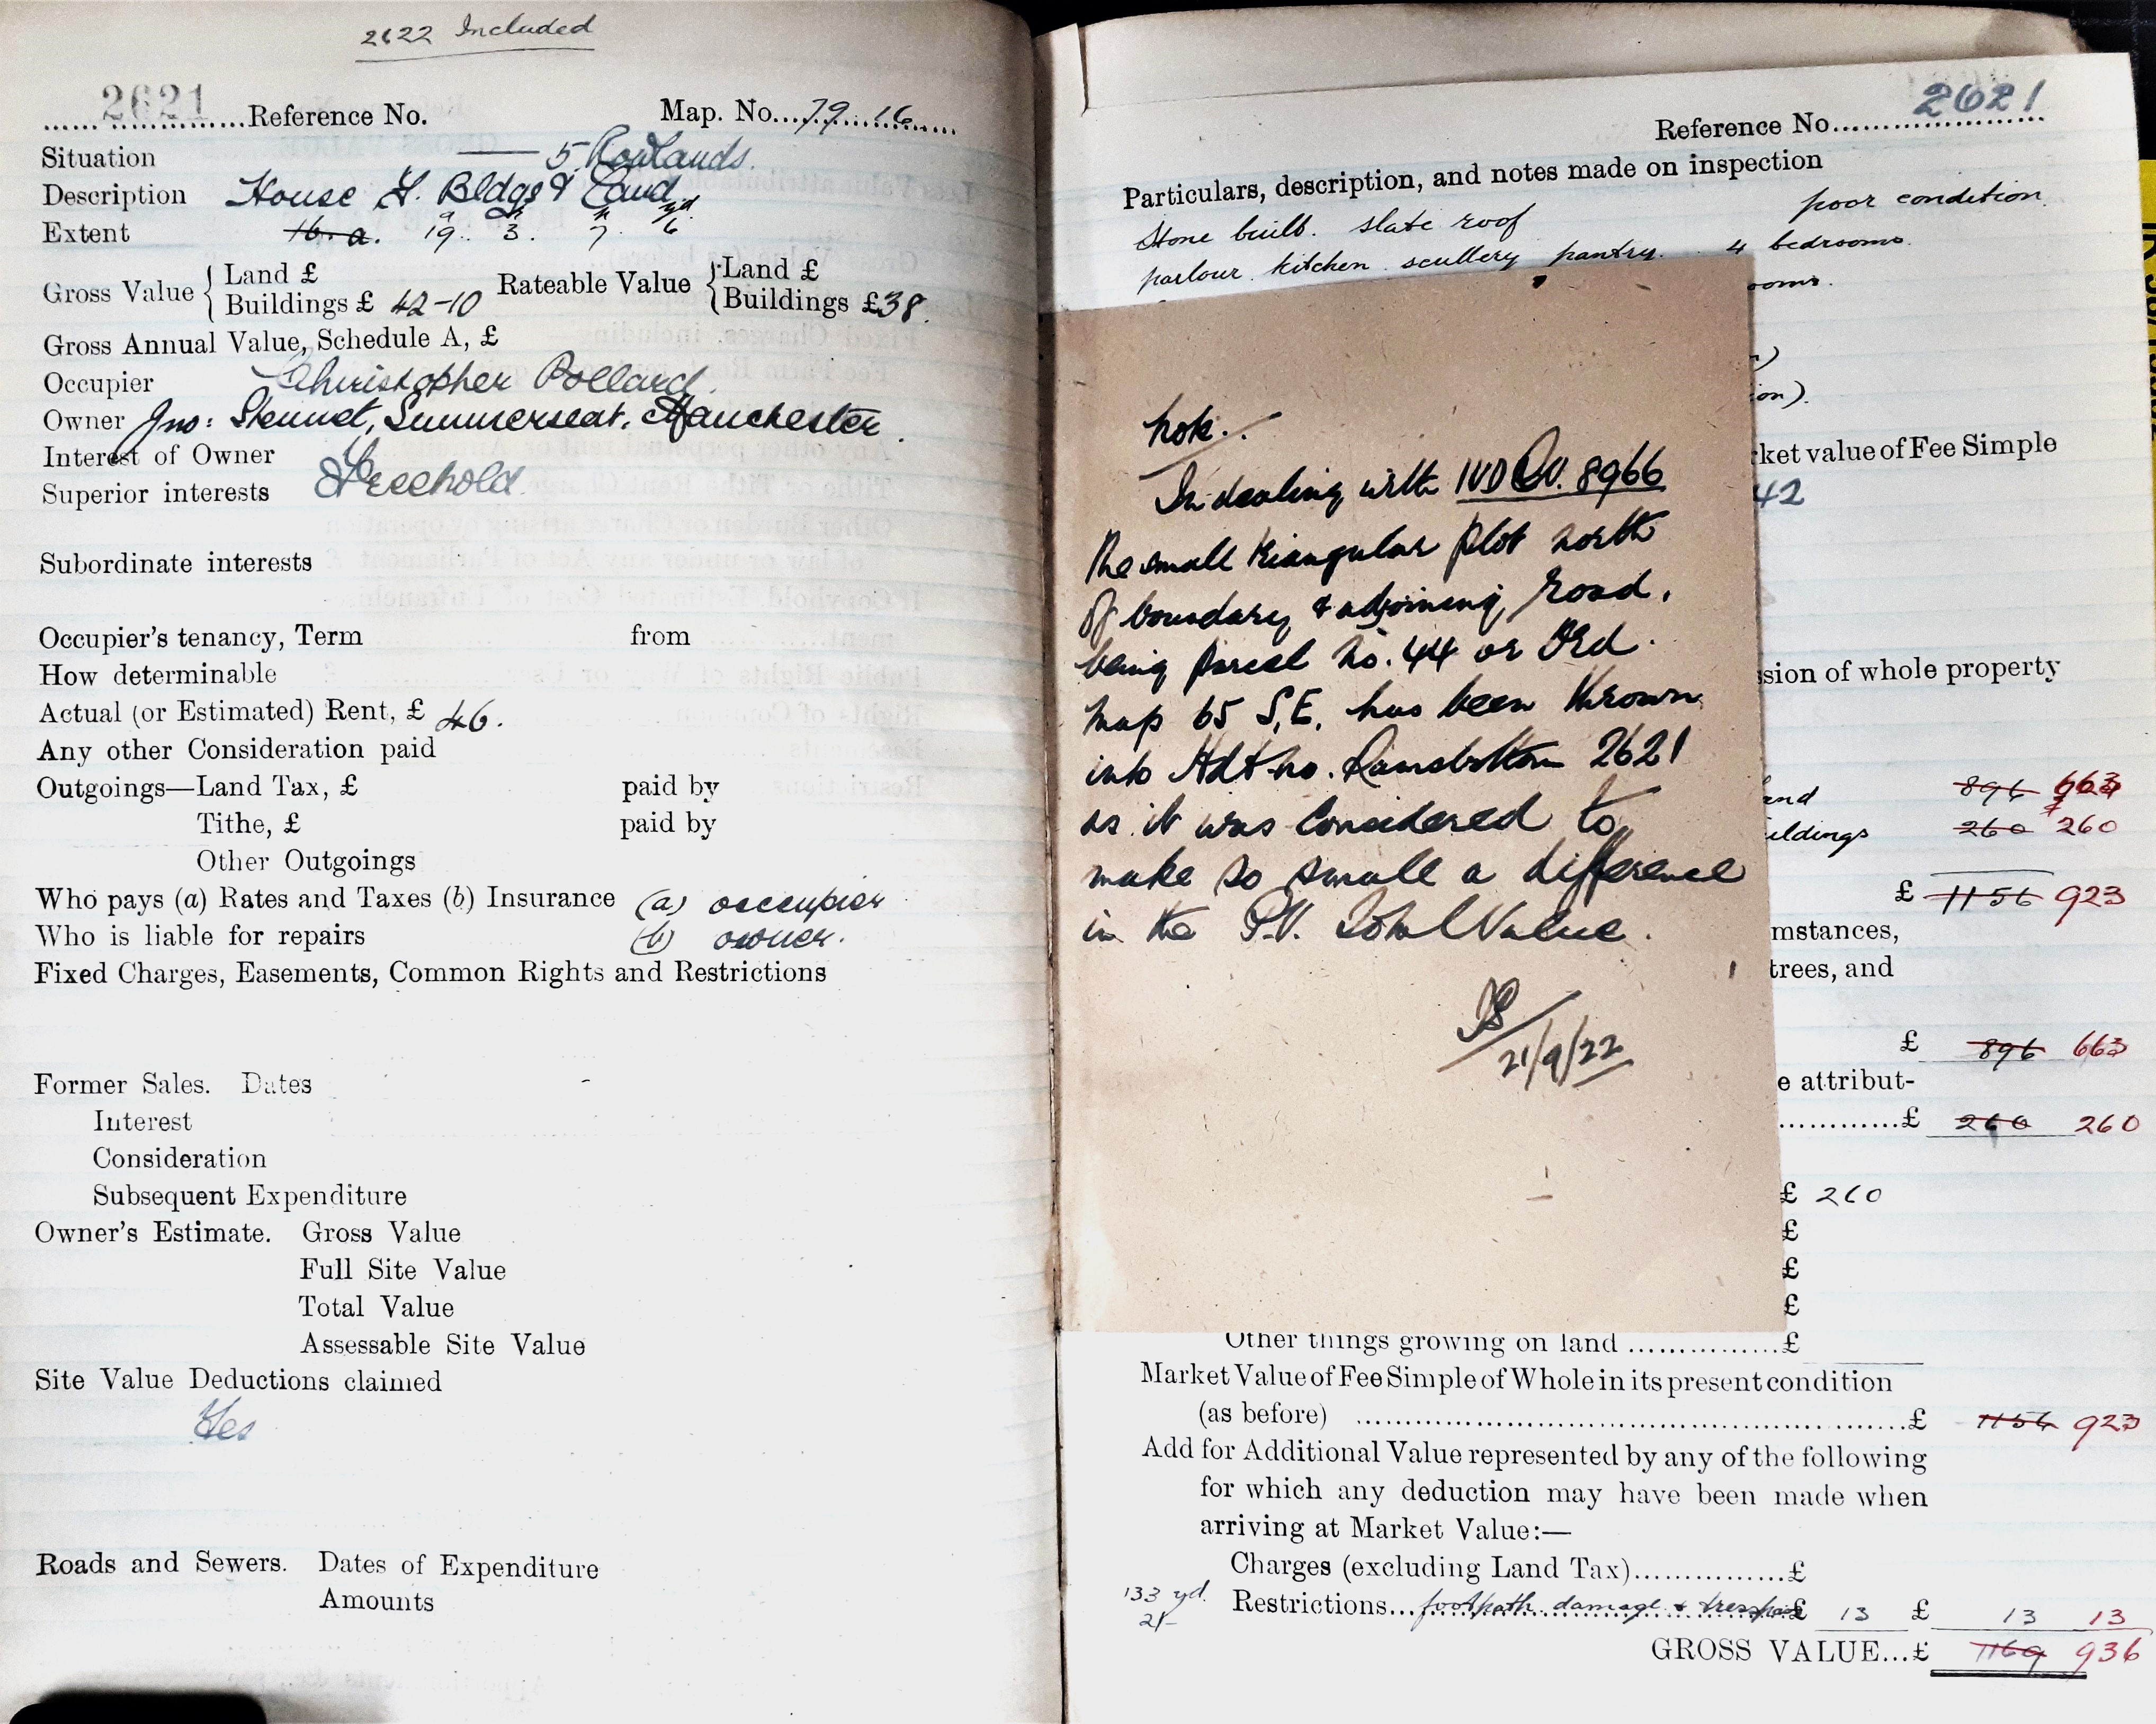 2622 Included
2621 Reference No. Map. No. 79.16
Situation 5 Rowlands.
Description House F. Bldgs & Land
Extent 16. a. 19 a 3. r 7. p 6 yd
Gross Value { Land £ Rateable Value { Land £
Buildings £ 42-10 Buildings £ 38.
Gross Annual Value, Schedule A, £
Occupier Christopher Pollard.
Owner Jno: Stennet, Summerseat, Manchester.
Interest of Owner
Superior interests Freehold
Subordinate interests
Occupier's tenancy, Term from
How determinable
Actual (or Estimated) Rent, £ 46.
Any other Consideration paid
Outgoings—Land Tax, £ paid by
Tithe, £ paid by
Other Outgoings
Who pays (a) Rates and Taxes (b) Insurance (a) occupier
Who is liable for repairs (b) owner.
Fixed Charges, Easements, Common Rights and Restrictions
Former Sales. Dates
Interest
Consideration
Subsequent Expenditure
Owner's Estimate. Gross Value
Full Site Value
Total Value
Assessable Site Value
Site Value Deductions claimed
Yes
Roads and Sewers. Dates of Expenditure
Amounts
Reference No. 2621
Particulars, description, and notes made on inspection
Stone built. slate roof poor condition.
parlour kitchen scullery pantry. 4 bedrooms.
ooms.
ion).
rket value of Fee Simple
42
note.
In dealing with IVD 8966
the small triangular plot north
of boundary & adjoining road,
being parcel no. 44 or Ord.
map 65 S.E. has been thrown
into Hdt no. Ramsbottom 2621
as it was considered to
make so small a difference
in the P.V. Total Value.
21/9/22
sion of whole property
and 896 663
uildings 260 260
£ 1156 923
mstances,
trees, and
£ 896 663
e attribut-
£ 260 260
£ 260
£
£
£
Other things growing on land £
Market Value of Fee Simple of Whole in its present condition
(as before) £ 1156 923
Add for Additional Value represented by any of the following
for which any deduction may have been made when
arriving at Market Value:—
Charges (excluding Land Tax) £
133 yd. Restrictions... footpath damage & trespass £ 13 £ 13 13
2/-
GROSS VALUE...£ 1169 936